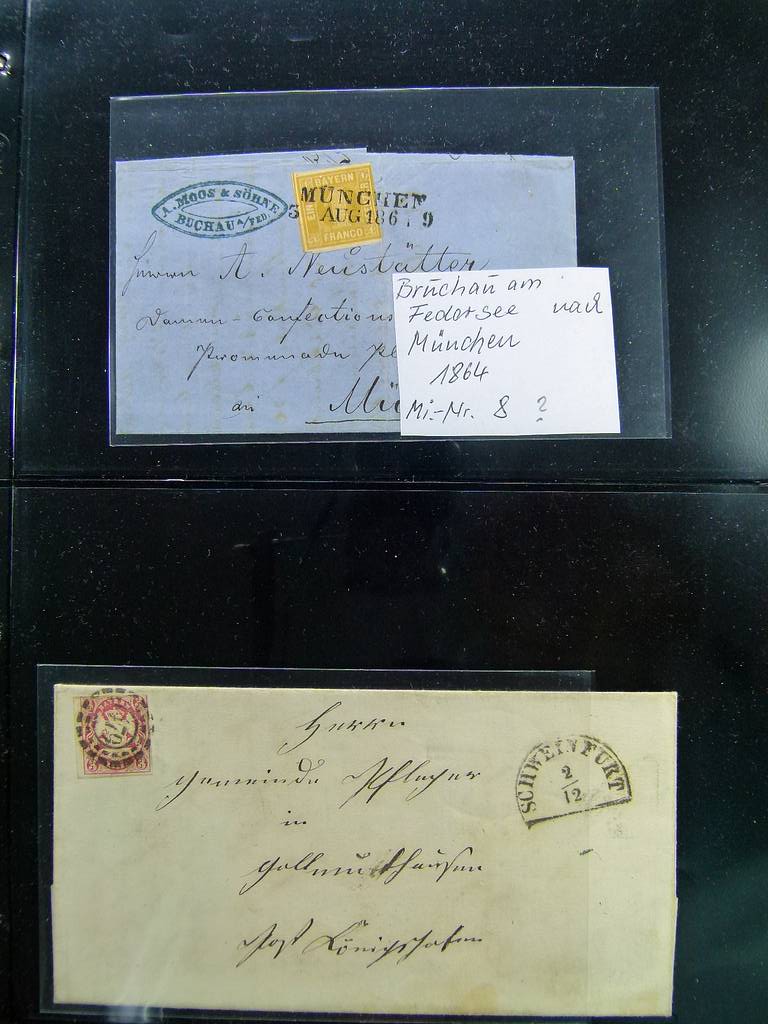 A. MOOS & SÖHNE
BUCHAU a/FED.
BAYERN
EIN
FRANCO
MÜNCHEN
AUG 186 9
Herrn A. Neustätter
Damen-Confections
Promenade Pl
in Mü
Bruchau am
Federsee nach
München
1864
Mi.-Nr. 8 ?
Herrn
Gemeinde Pfleger
in
Gollmuthhausen
Post Königshofen
SCHWEINFURT
2
12